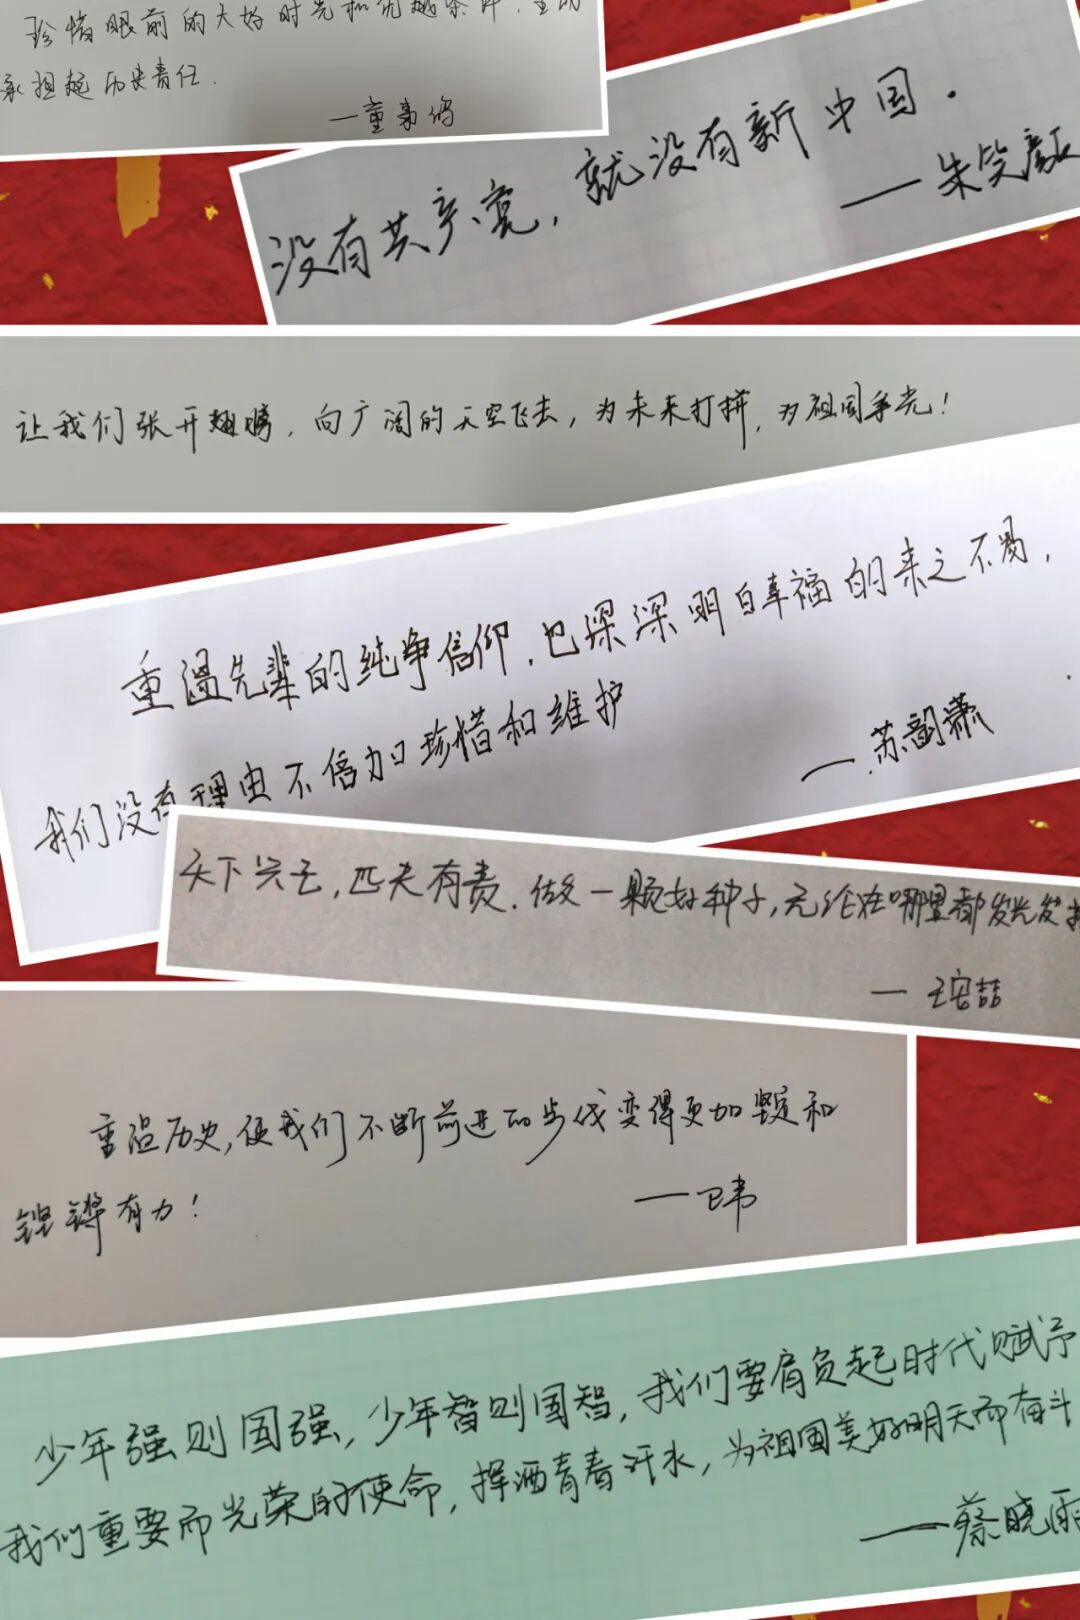 珍惜眼前的大好时光和优越条件，主动
承担起历史责任.
没有共产党，就没有新中国.
——朱笑毅
让我们张开翅膀，向广阔的天空飞去，为未来打拼，为祖国争光！
重温先辈的纯净信仰，也深深明白幸福的来之不易，
我们没有理由不倍加珍惜和维护
——苏韵潇
天下兴亡，匹夫有责.做一颗好种子，无论在哪里都发光发
重温历史，使我们不断前进的步伐变得更加坚定和
铿锵有力！
——卫韦
少年强则国强，少年智则国智，我们要肩负起时代赋予
我们重要而光荣的使命，挥洒青春汗水，为祖国美好明天而奋斗
——蔡晓雨